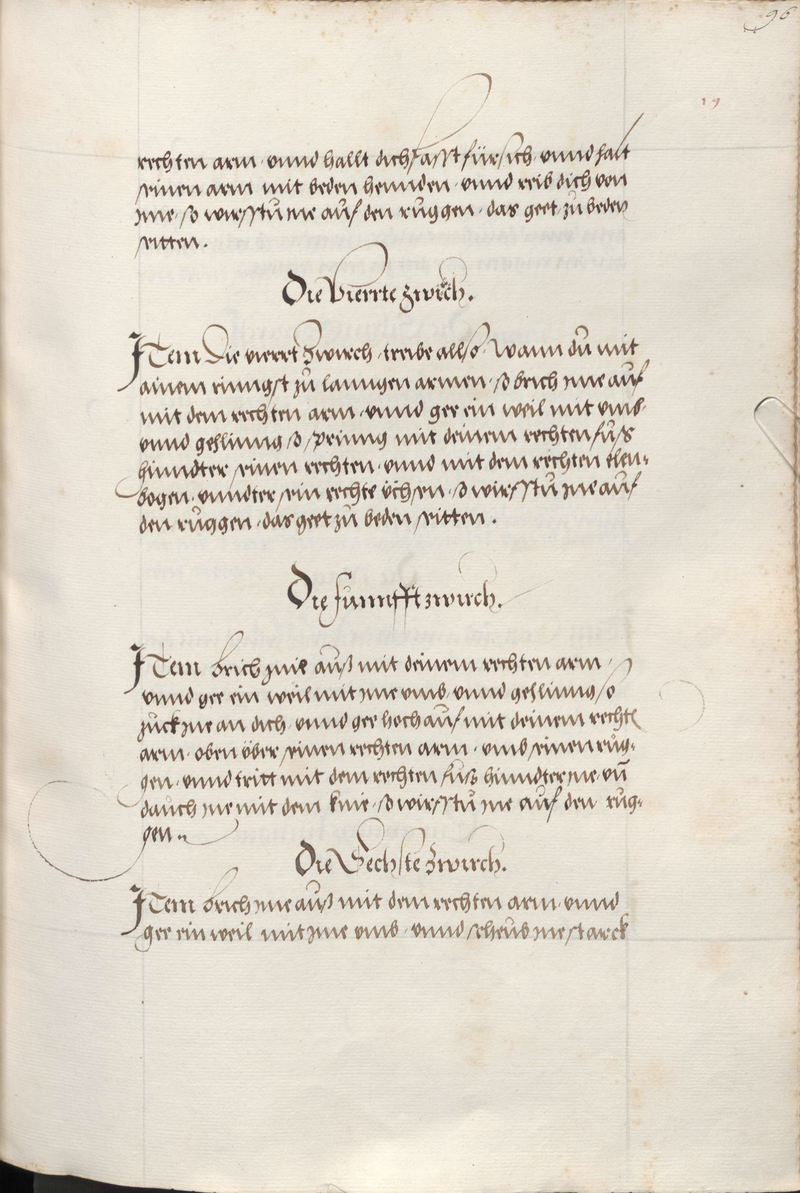 96
19
rechten arm · vnnd hallt dich fasst für sich · vnnd halt
seinen arm mit beden hennden · vnnd reib dich von
yme · so wirfstu yne auf den ruggen · das geet zu beden
seitten .
Die Vierrte zwirch .
JTem Die vierrt zwirch · treibe allso · Wann du mit
ainem ringst zu lanngen armen · so brich yme auß
mit dem rechten arm · vnnd gee ein weil mit vmb ·
vnnd gehlinng so spring mit deinem rechten fuß
hinndter seinen rechten · vnnd mit dem rechten elen=
bogen · vnndter sein rechte üchsen · so wirfstu yne auf
den ruggen · das geet zu beden seitten .
Die funnfft zwirch .
JTem brich yme auß mit deinem rechten arm ·
vnnd gee ein weil mit yme vmb · vnnd gehlinng so
zuck yne an dich · vnnd gee hoch auf mit deinem rechtē
arm · oben über seinen rechten arm · vmb seinen rug=
gen · vnnd tritt mit dem rechten fuß hinndter yne · vn̄
dauch yne mit dem knie · so wirfstu yne auf den rug=
gen ..
Die Sechste zwirch .
JTem brich yme auß mit dem rechten arm · vnnd
gee ein weil mit yme vmb · vnnd scheub yne starck